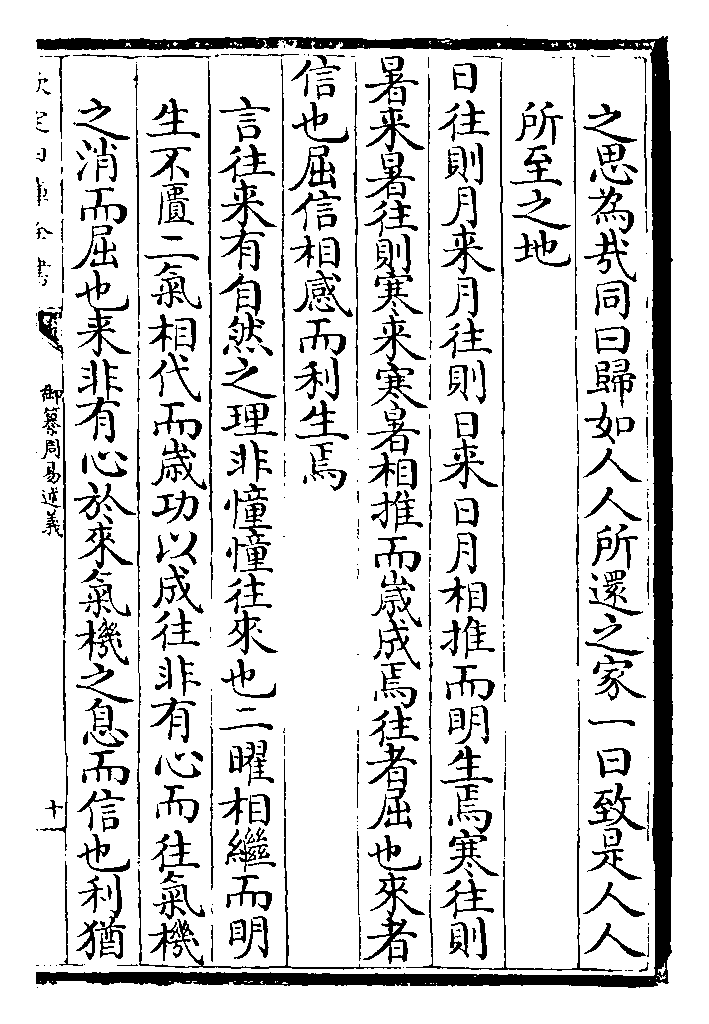 之思為㢤同曰歸如人人所還之家一曰致是人人
所至之地
日往則月来月往則日来日月相推而明生焉寒往則
暑来暑往則寒来寒暑相推而歲成焉往者屈也來者
信也屈信相感而利生焉
言往来有自然之理非憧憧往來也二曜相繼而明
生不匱二氣相代而歲功以成往非有心而往氣機
之消而屈也来非有心於來氣機之息而信也利猶
欽定四庫全書
御纂周易述義
十